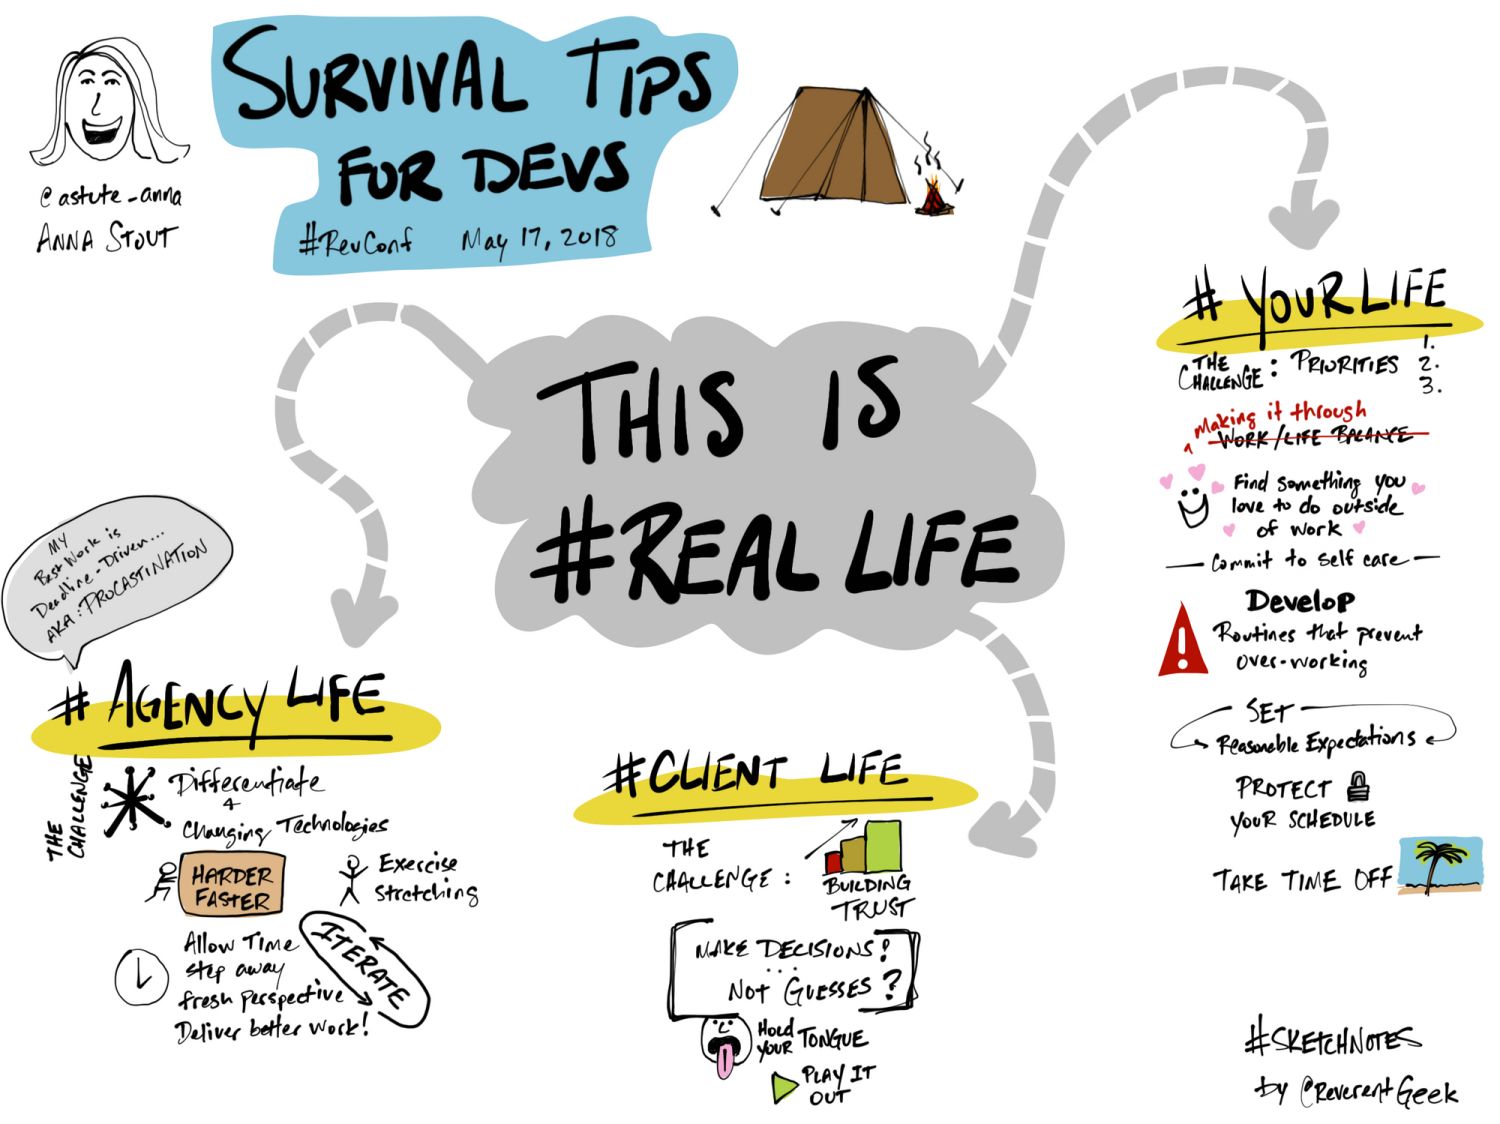 @astute_anna
ANNA STOUT
SURVIVAL TIPS
FOR DEVS
#RevConf May 17, 2018
THIS IS
#REAL LIFE
MY
Best Work is
Deadline-Driven...
AKA: PROCASTINATION
# AGENCY LIFE
THE
CHALLENGE
Differentiate
+
Changing Technologies
HARDER
FASTER
Exercise
Stretching
Allow Time
step away
fresh perspective
Deliver better work!
ITERATE
#CLIENT LIFE
THE
CHALLENGE:
BUILDING
TRUST
MAKE DECISIONS!
...
NOT GUESSES?
HOLD
YOUR TONGUE
PLAY IT
OUT
# YOUR LIFE
THE
CHALLENGE: PRIORITIES
1.
2.
3.
Making it through
WORK/LIFE BALANCE
Find something you
love to do outside
of work
Commit to self care
Develop
Routines that prevent
over-working
SET
Reasonable Expectations
PROTECT
YOUR SCHEDULE
TAKE TIME OFF
#SKETCHNOTES
by @ReverentGeek